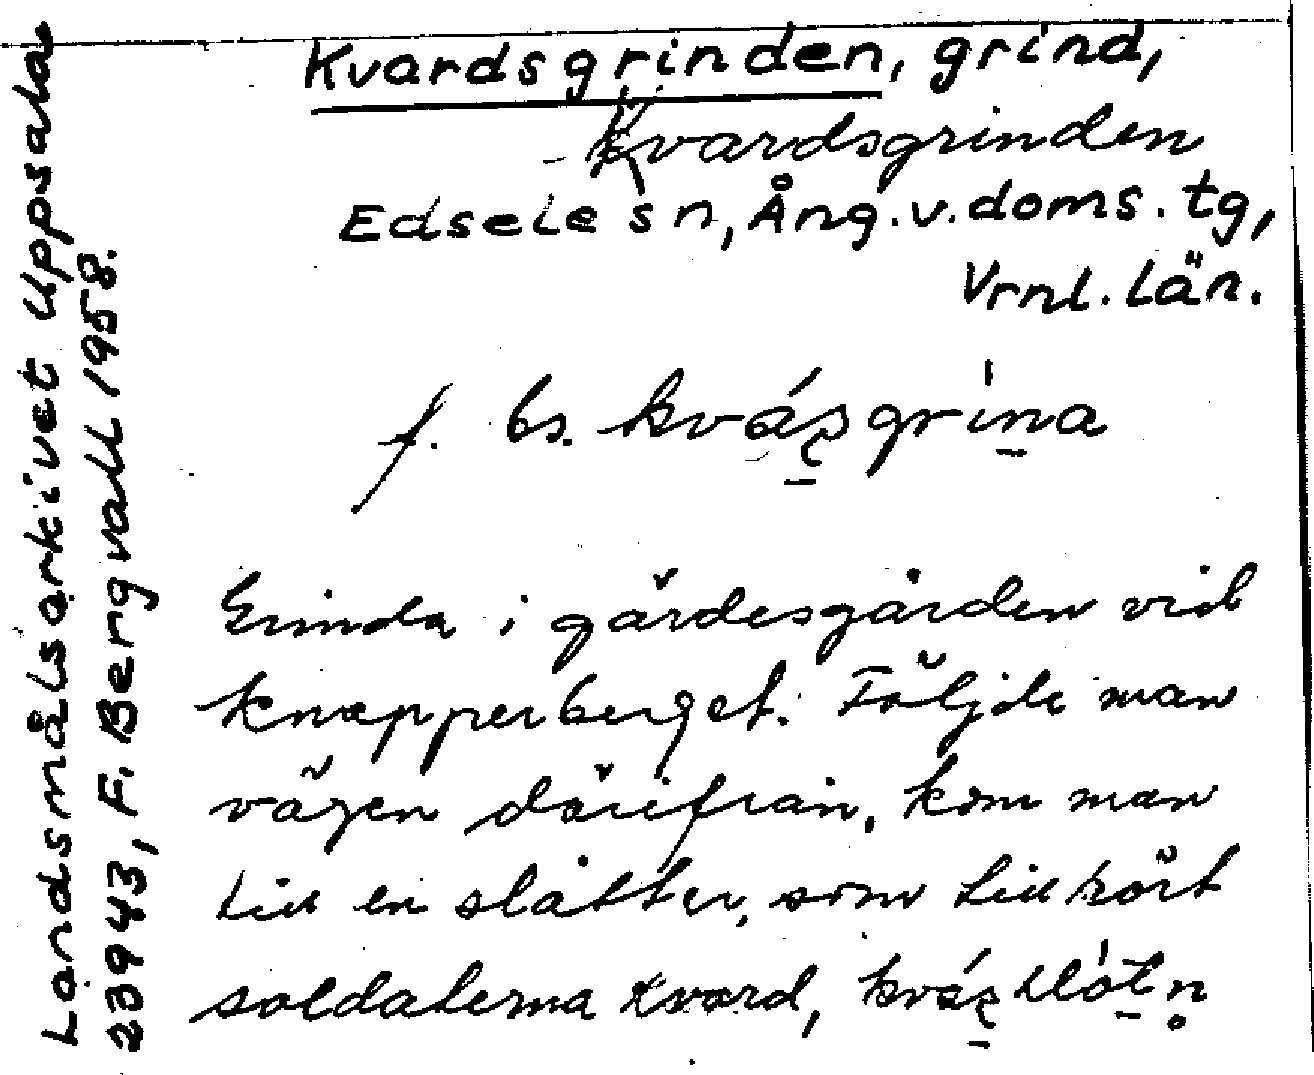 Kvardsgrinden, grind,
Kvardsgrinden
Edsele sn, Ång.v.doms.tg,
Vrnl. län.
f. bs. kváṣgrina
Grinda i gärdesgården vid
Knapperberget. Följde man
vägen därifrån, kom man
till en slåtter, som tillhört
soldaterna Kvard,
Landsmålsarkivet Uppsala
23943, F. Bergvall 1958.